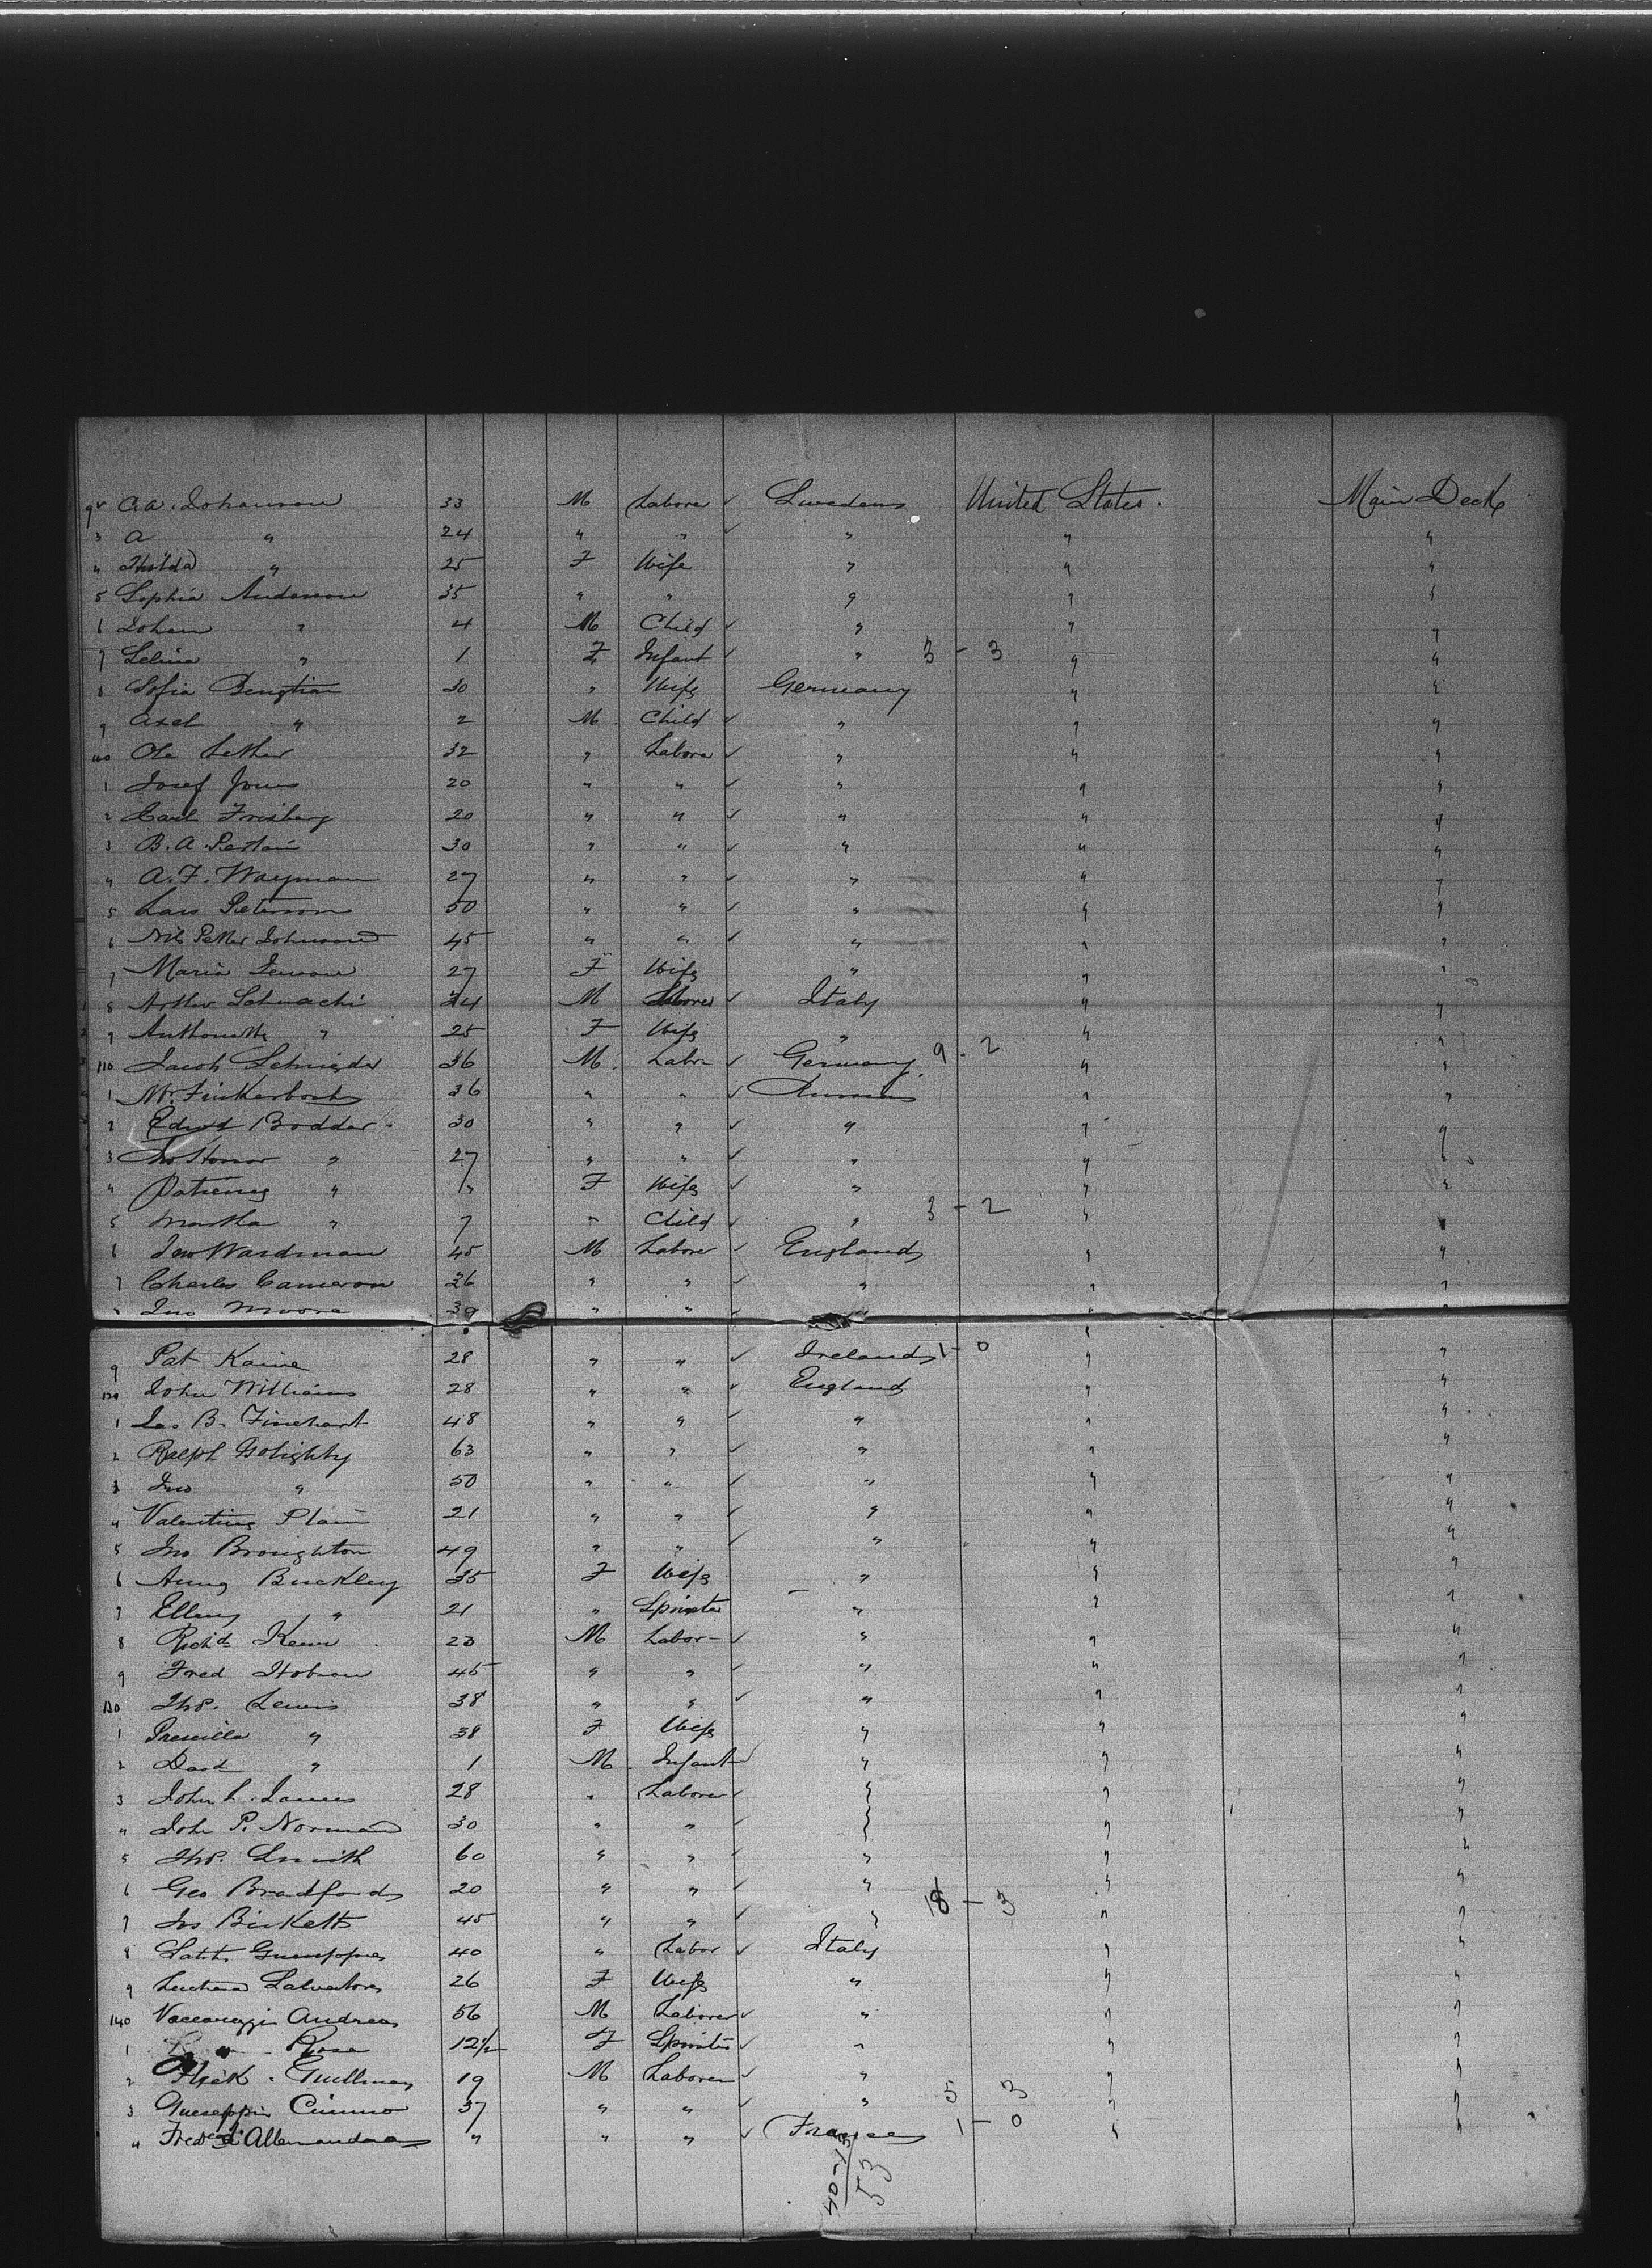 92 C. A. Johanson 33 M Labore ✓ Sweden United States. Main Deck
3 A " 24 " " ✓ " " "
4 Thilda " 25 F Wife " " "
5 Sophia Anderson 35 " " " " "
6 Johan " 4 M Child ✓ " " "
7 Selina " 1 F Infant ✓ " 3 - 3 " "
8 Sofia Bengtian 30 " Wife Germany " "
9 Axel " 2 M Child ✓ " " "
100 Ole Lether 32 " Labore ✓ " " "
1 Josef Jones 20 " " ✓ " " "
2 Carl Frisberg 20 " " ✓ " " "
3 B. A. 30 " " ✓ " " "
4 A. F. Wayman 27 " " ✓ " " "
5 Lars Peterson 50 " " ✓ " " "
6 Nils Petter Johnson 45 " " ✓ " " "
7 Maria 27 F Wife " " "
8 24 M Labores ✓ Italy " "
9 " 25 F Wife " " "
110 Jacob Schnieder 36 M Labr ✓ Germany. 9 - 2 " "
1 M. Finkerbosh 36 " " ✓ " "
2 Edwd Bodder 30 " " ✓ " " "
3 " 27 " " ✓ " " "
4 Patieng " " F Wife ✓ " " "
5 Martha " 7 " Child ✓ " 3 - 2 "
6 Jno Wardman 45 M Labore ✓ England " "
7 Charles Cameron 26 " " ✓ " " "
8 Jno Moore 39 " " ✓ " " "
9 Pat Kaine 28 " " ✓ Ireland 1 - 0 " "
120 John Williams 28 " " ✓ England " "
1 Jas. B. Finehart 48 " " ✓ " " "
2 Ralph Golighty 63 " " ✓ " " "
3 Jno " 50 " " ✓ " " "
4 Valentine Plain 21 " " ✓ " " "
5 Jno Broughton 49 " " ✓ " " "
6 Anna Buckley 35 F Wife " " "
7 Ellen " 21 " Spinster " " "
8 Richd Kew 23 M Labor ✓ " " "
9 Fred Hobson 45 " " ✓ " " "
130 Thos. Lewis 38 " " ✓ " " "
1 Prescilla " 38 F Wife " " "
2 David " 1 M Infant ✓ " " "
3 John L. James 28 " Labore ✓ " " "
4 John P. Norman 30 " " ✓ " " "
5 Thos. Smith 60 " " ✓ " " "
6 Geo Bradford 20 " " ✓ " 18 - 3 " "
7 Jos Birketts 45 " " ✓ " " "
8 40 " Labor ✓ Italy " "
9 Salvatore 26 F Wife " " "
140 Andrea 56 M Laborer ✓ " " "
1 " Rosa 12½ F Spinster ✓ " " "
2 19 M Laborer ✓ " " "
3 Gueseppie 37 " " ✓ " 5 3 " "
4 Fred " " " ✓ France 1 - 0 " "
40-13
53